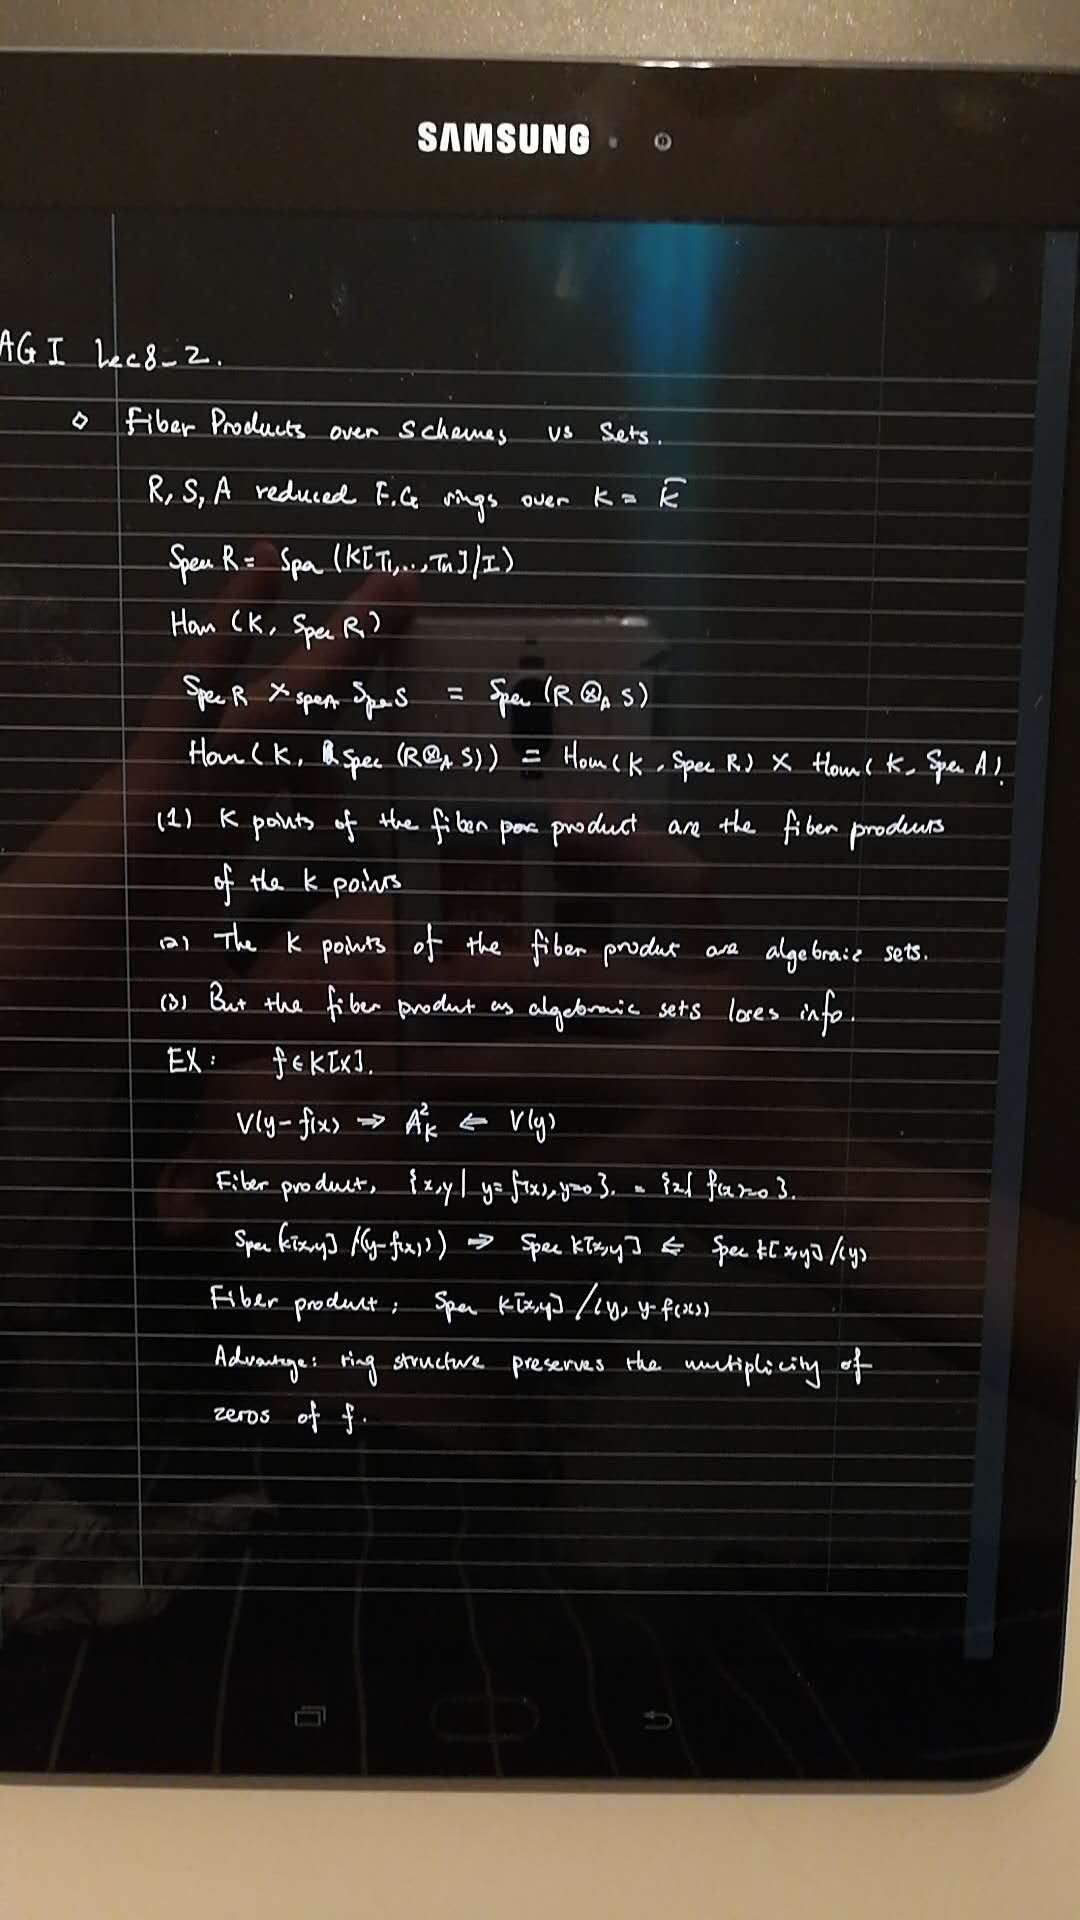 SAMSUNG
AG I Lec8-2.
◇ Fiber Products over Schemes vs Sets.
R, S, A reduced F.G rings over K = K̅
Spec R = Spec (K[T1,...,Tn]/I)
Hom (K, Spec R)
Spec R ×Spec A Spec S = Spec (R ⊗A S)
Hom (K, Spec (R⊗A S)) = Hom (K, Spec R) × Hom (K, Spec A).
(1) K points of the fiber product are the fiber products
of the K points
(2) The K points of the fiber product are algebraic sets.
(3) But the fiber product as algebraic sets loses info.
EX: f ∈ K[X].
V(y-f(x)) ⇒ A²K ⇐ V(y)
Fiber product, {x,y | y=f(x), y=0}. = {x| f(x)=0}.
Spec k[x,y] /(y-f(x))) ⇒ Spec K[x,y] ⇐ Spec k[x,y]/(y)
Fiber product: Spec K[x,y] /(y, y-f(x))
Advantage: ring structure preserves the multiplicity of
zeros of f.